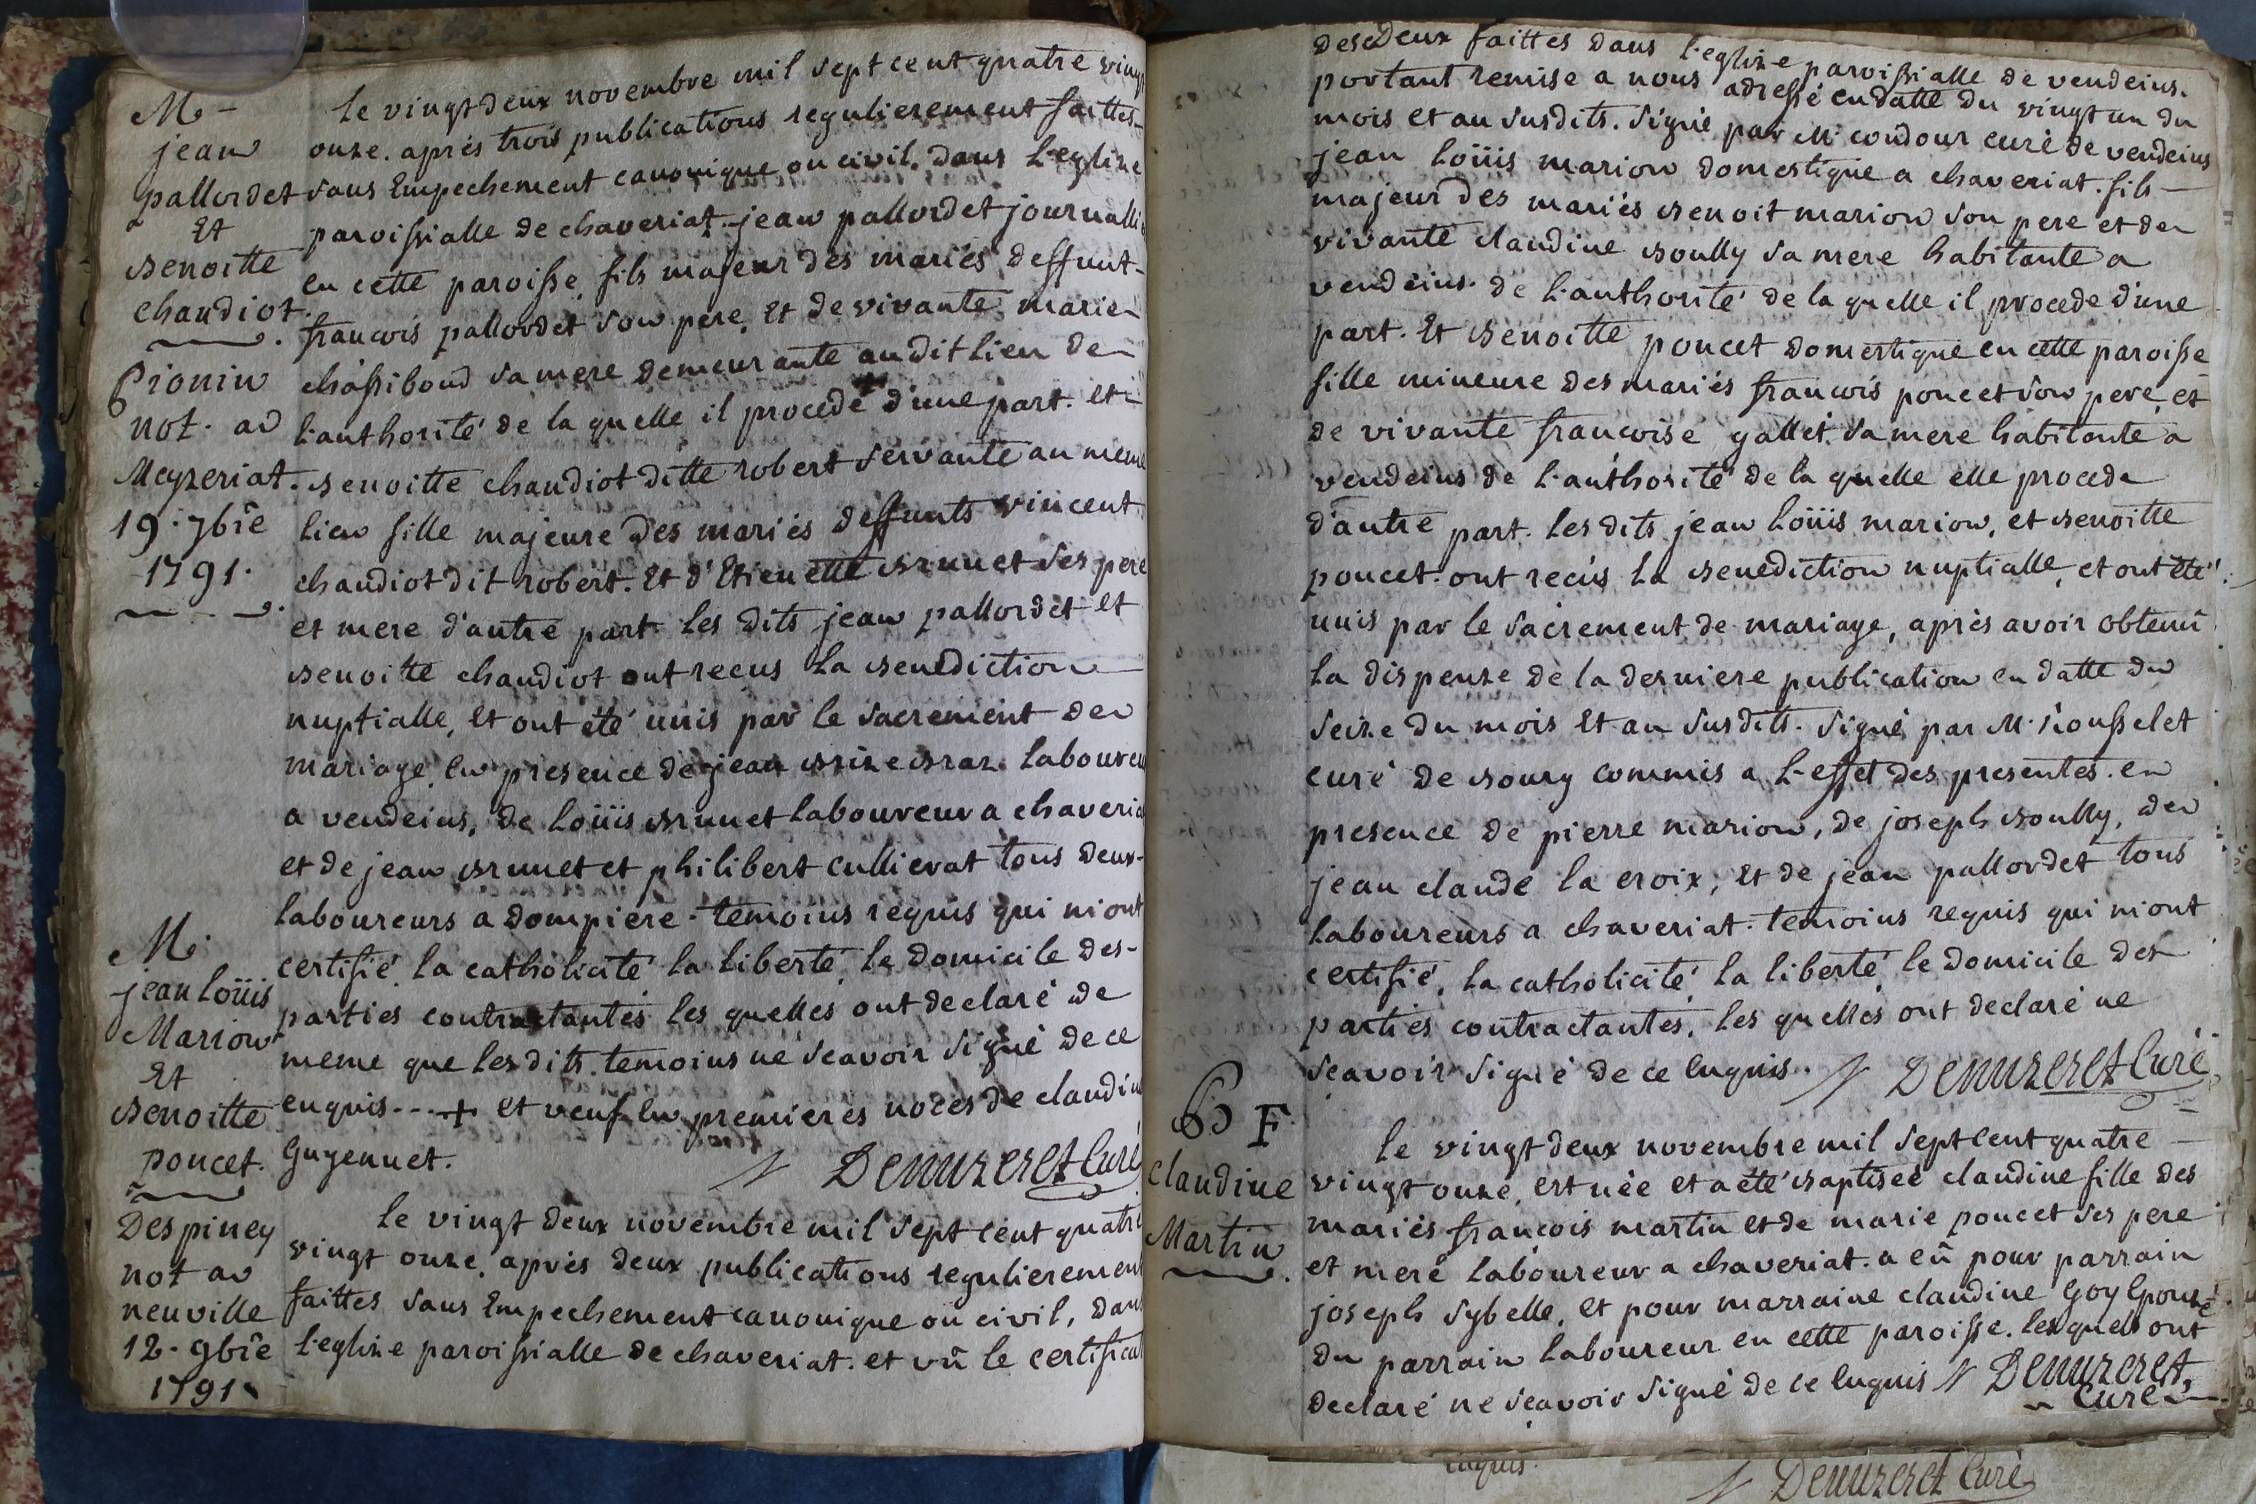 M.
jean
pallordet
Et
Benoitte
chaudiot.
Pionin
not. av
Meyzeriat.
19. 7bre
1791.
le vingt deux novembre mil sept cent quatre vingt
onze. aprés trois publications regulierement faittes
sans Empechement canonique ou civil. dans l'eglize
paroissialle de chaveriat. jean pallordet journallie
en cette paroisse, fils majeur des mariés deffunt
francois pallordet son pere, Et de vivante marie
chassiboud sa mere demeurante au dit lieu de
l'authorité de la quelle il procede d'une part. et
Benoitte chaudiot ditte robert servante au meme
lieu fille majeure des mariés deffunts vincent
chaudiot dit robert. Et d'Etienette Brunet ses pere
et mere d'autre part. les dits jean pallordet et
Benoitte chaudiot ont recus la Benediction
nuptialle, Et ont été unis par le sacrement de
mariage, en presence de jean Brize Braz. laboureur
a vendeins, de loüis Brunet laboureur a chaveria
et de jean Brunet et philibert cullierat tous deux
laboureurs a dompiere. temoins requis qui m'ont
certifié la catholicité la liberté, le domicile des
parties contractantes les quelles ont declaré de
meme que les dits temoins ne scavoir signé de ce
enquis. - - + et veuf en premieres noces de claudin
Guyennet.
N Demuzeret Curé
M.
jean loüis
Marion
Et
Benoitte
poucet.
Despiney
not av
neuville
12. 9bre
1791.
le vingt deux novembre mil sept cent quatre
vingt onze, aprés deux publications regulierement
faittes sans Empechement canonique ou civil, dans
l'eglize paroissialle de chaveriat. et vû le certificat
des deux faittes dans l'eglize paroissialle de vendeins.
portant remise a nous adressé en datte du vingt un du
mois et an susdits. signé par Mr coudour curé de vendeins
jean loüis marion domestique a chaveriat. fils
majeur des mariés Benoit marion son pere et de
vivante claudine Boully sa mere habitante a
vendeins. de l'authorité de la quelle il procede d'une
part. Et Benoitte poucet domestique en cette paroisse
fille mineure des mariés francois poucet son pere, et
de vivante francoise gallet. sa mere habitante a
vendeins de l'authorité de la quelle elle procede
d'autre part. les dits jean loüis marion, et Benoitte
poucet. ont recús la Benediction nuptialle, et ont été
unis par le sacrement de mariage, après avoir obtenû
la dispense de la derniere publication en datte du
seize du mois Et an susdits. signé par M. rousselet
curé de Bourg commis a l'effet des presentes. en
presence de pierre marion, de joseph Boully, de
jean claude la croix, Et de jean pallordet tous
laboureurs a chaveriat. temoins requis qui m'ont
certifié, la catholicité, la liberté, le domicile des
parties contractantes, les quelles ont declaré ne
scavoir signé de ce enquis. N Demuzeret Curé
B F.
claudine
Martin
le vingt deux novembre mil sept cent quatre
vingt onze, est née et a été Baptisée claudine fille des
mariés francois martin et de marie poucet ses pere
et mere laboureur a chaveriat. a eû pour parrain
joseph sybelle, Et pour marraine claudine Goy Epouse
du parrain laboureur en cette paroisse. lesquels ont
declaré ne scavoir signé de ce enquis N Demuzeret
Curé
enquis.
N Demuzeret Curé